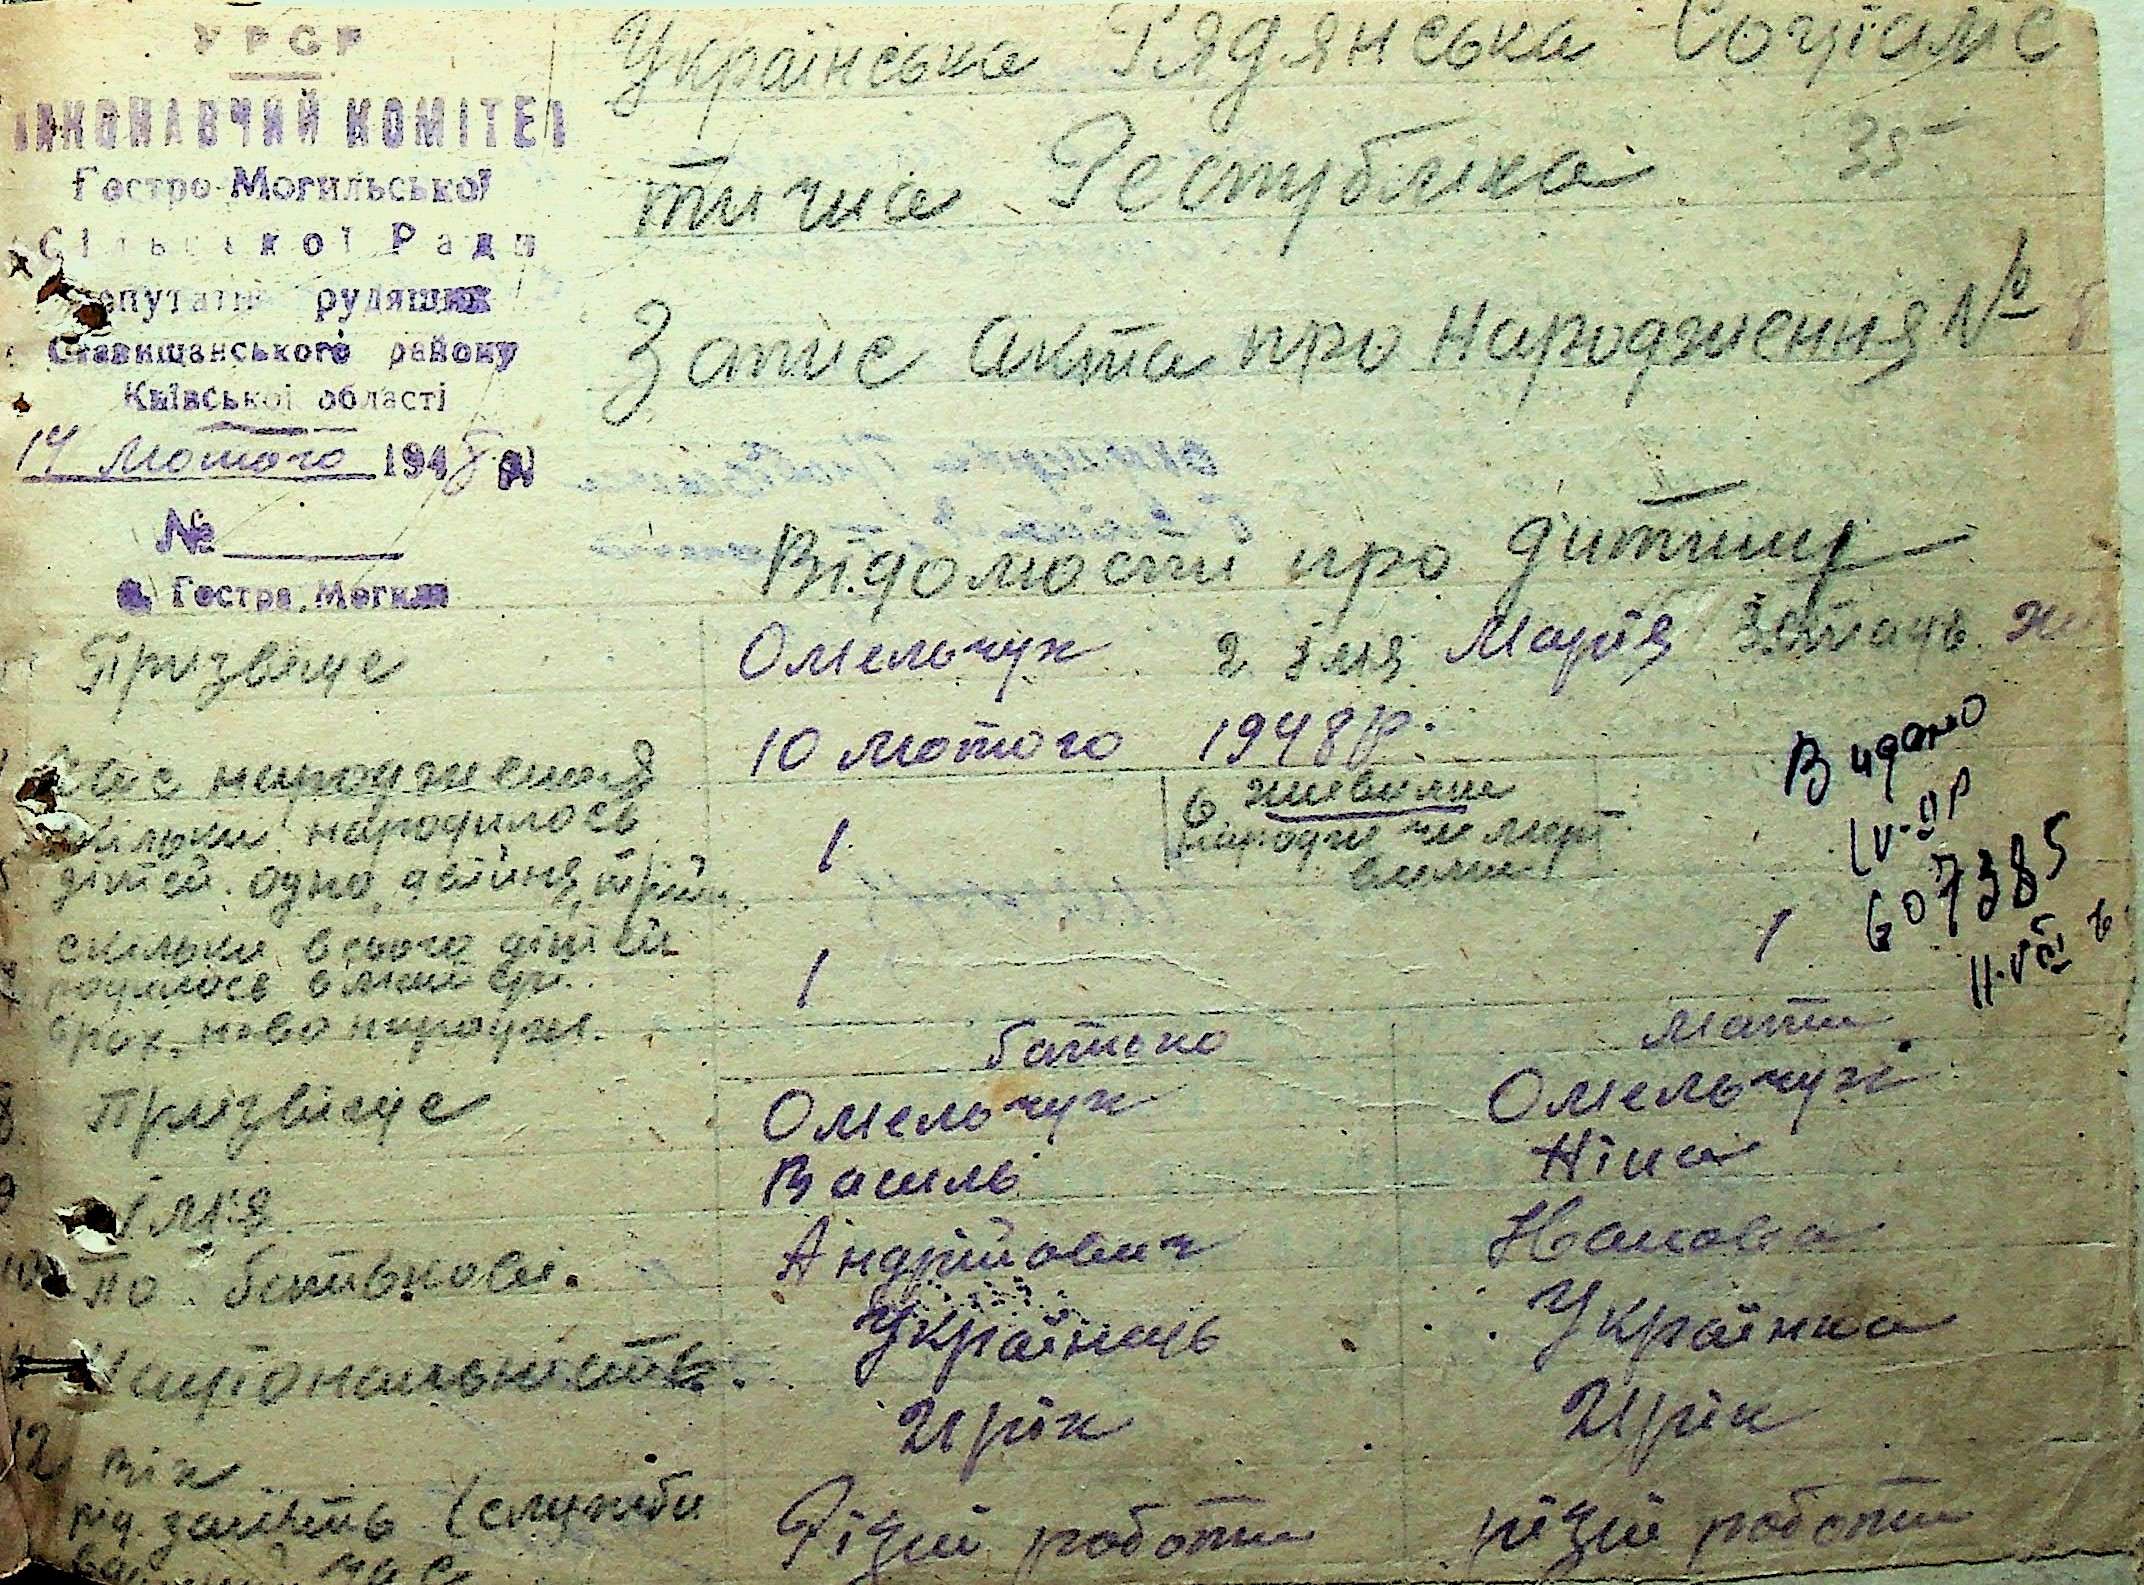 УРСР
ВИКОНАВЧИЙ КОМІТЕТ
Гостро-Могильської
Сільської Ради
депутатів трудящих
Ставищанського району
Київської області
14 лютого 1948 р
№
с. Гостра Могила
Українська Рядянська Соціаліс
тична Республіка 35
Запис Акта про народження №
Відомости про дитину
Призвіще Омельчук 2 імя Марія 3 стать
Час народження 10 лютого 1948 р.
скільки народилось
дітей одно, двійня, трійн. 1 6 живими
народж чи мерт
вими
скільки всього дітей
родилось в матері 1 1
врах. ново народж.
Видано
IV-ЯР
607385
11.VIII
батько мати
Прізвіще Омельчук Омельчук
Імя Василь Ніна
10 По батькові. Андрійович
11 Національність. Українець Українка
12 Вік 21 рік 21 рік
рід занять (служби Різні роботи різні роботи